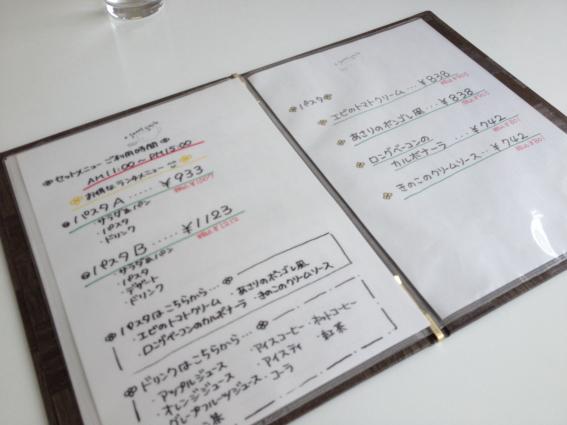 セットメニュー ご利用時間
AM 11:00 ～ PM 15:00
お得なランチメニュー
パスタA ····· ￥933
・サラダ&パン
・パスタ
・ドリンク
パスタB ····· ￥1123
・サラダ&パン
・パスタ
・デザート
・ドリンク
パスタはこちらから…
・エビのトマトクリーム ・あさりのボンゴレ風
・ロングベーコンのカルボナーラ ・きのこのクリームソース
ドリンクはこちらから…
・アップルジュース ・アイスコーヒー ・ホットコーヒー
・オレンジジュース ・アイスティ ・紅茶
・グレープフルーツジュース ・コーラ
パスタ
エビのトマトクリーム … ￥838
あさりのボンゴレ風 … ￥838
ロングベーコンの
カルボナーラ … ￥742
きのこのクリームソース … ￥742